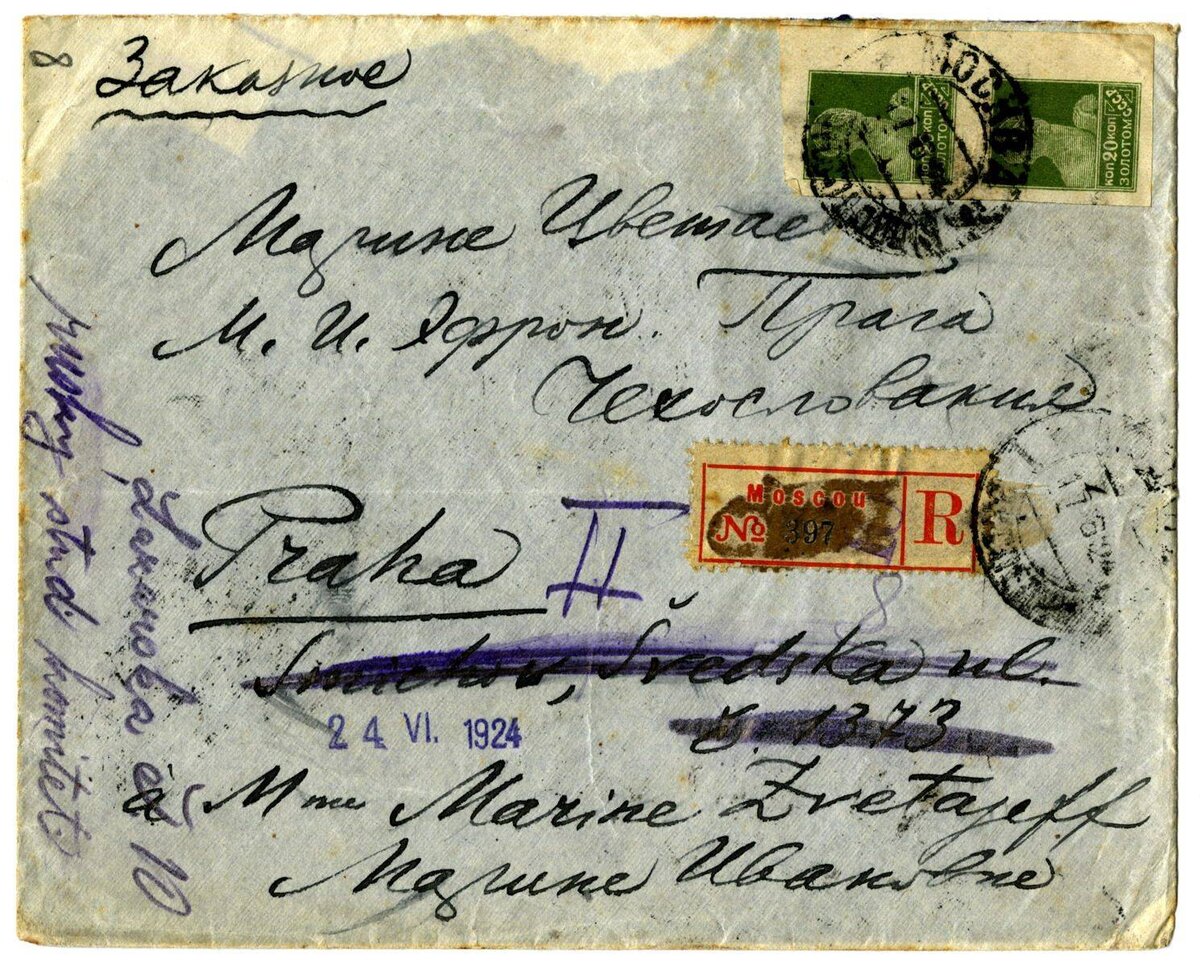 8
Заказное
МОСКВА
20 КОП
ЗОЛОТОМ
КОП 20 КОП
ЗОЛОТОМ
Марине Цветае
М. И. Эфрон. Прага
Чехословакия
Moscou
№ 397
R
Praha II
Smichov, Švedska ul.
č. 1373
24 VI. 1924
à Mme Marine Zvetajeff
Марине Ивановне
stud. komitét
10